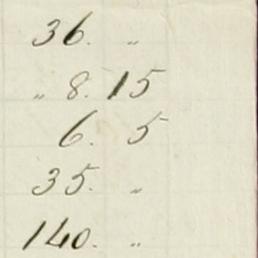 36. "
" 8. 15
6. 5
35. "
140. "